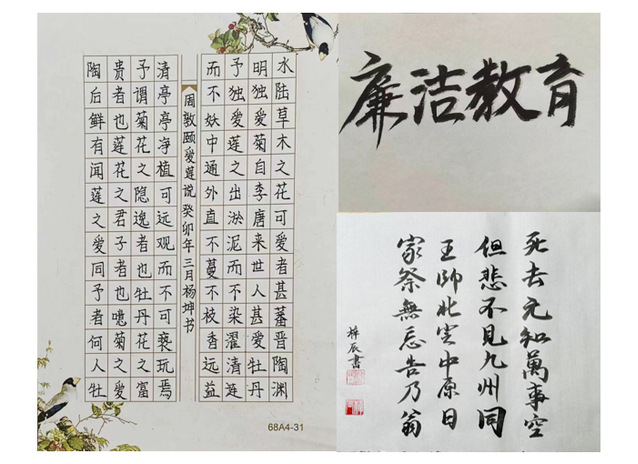 水陆草木之花可爱者甚蕃晋陶渊
明独爱菊自李唐来世人甚爱牡丹
予独爱莲之出淤泥而不染濯清涟
而不妖中通外直不蔓不枝香远益
周敦颐爱莲说 癸卯年三月杨坤书
清亭亭净植可远观而不可亵玩焉
予谓菊花之隐逸者也牡丹花之富
贵者也莲花之君子者也噫菊之爱
陶后鲜有闻莲之爱同予者何人牡
68A4-31
廉洁教育
死去元知萬事空
但悲不见九州同
王師北定中原日
家祭無忘告乃翁
梓辰書